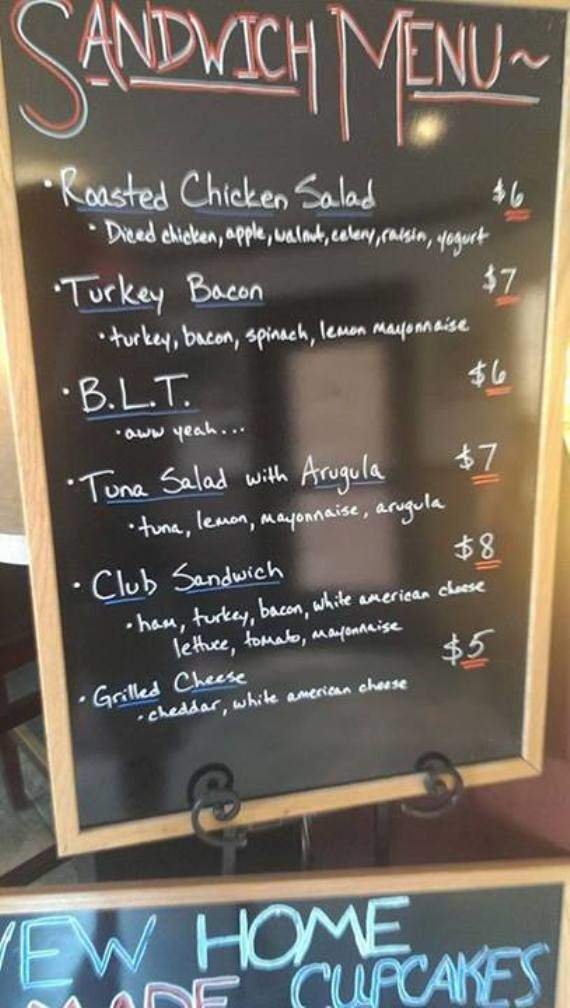 SANDWICH MENU~
· Roasted Chicken Salad $6
· Diced chicken, apple, walnut, celery, raisin, yogurt
· Turkey Bacon $7
· turkey, bacon, spinach, lemon mayonnaise
· B.L.T. $6
· aww yeah...
· Tuna Salad with Arugula $7
· tuna, lemon, mayonnaise, arugula
· Club Sandwich $8
· ham, turkey, bacon, white american cheese
lettuce, tomato, mayonnaise
· Grilled Cheese $5
· cheddar, white american cheese
EW HOME
MADE CUPCAKES